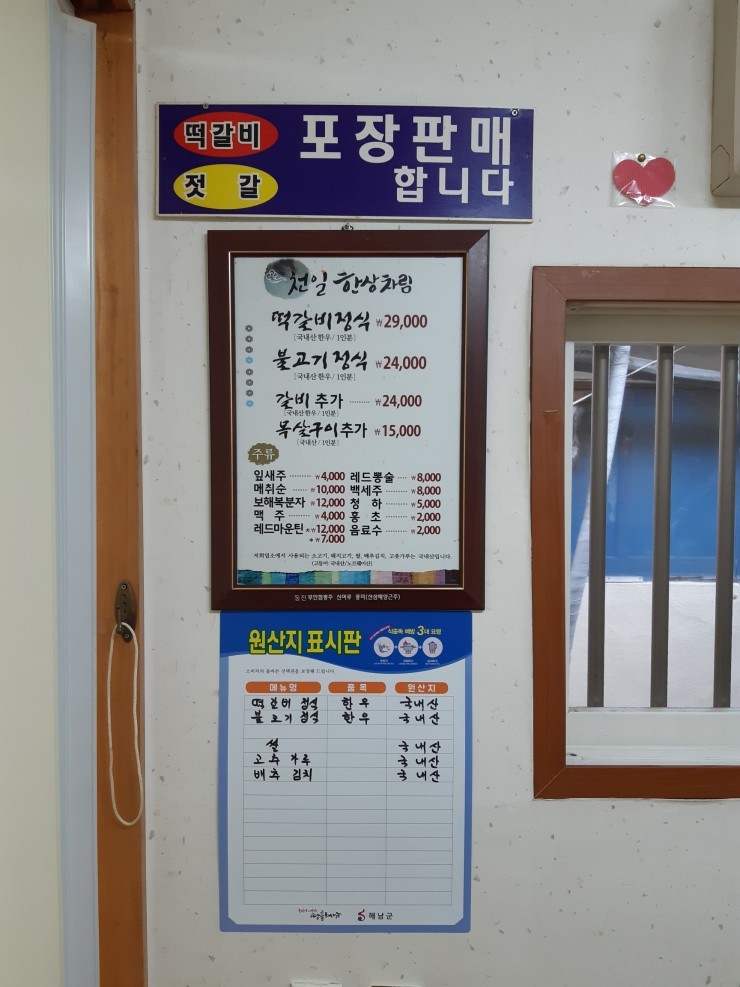 떡갈비 포장판매
젓갈 합니다
천일 한상차림
떡갈비정식 ₩29,000
[국내산한우/1인분]
불고기정식 ₩24,000
[국내산한우/1인분]
갈비추가 ₩24,000
[국내산한우/1인분]
목살구이추가 ₩15,000
[국내산/1인분]
주류
잎새주 ₩4,000 레드뽕술 ₩8,000
매취순 ₩10,000 백세주 ₩8,000
보해복분자 ₩12,000 청하 ₩5,000
맥주 ₩4,000 홍초 ₩2,000
레드마운틴 ₩12,000 음료수 ₩2,000
₩7,000
저희업소에서 사용되는 소고기, 돼지고기, 쌀, 배추김치, 고춧가루는 국내산입니다.
(고등어 국내산/노르웨이산)
원산지 표시판
식중독 예방 3대 요령
메뉴명 품목 원산지
떡갈비 정식 한우 국내산
불고기정식 한우 국내산
쌀 국내산
고추가루 국내산
배추김치 국내산
해남군